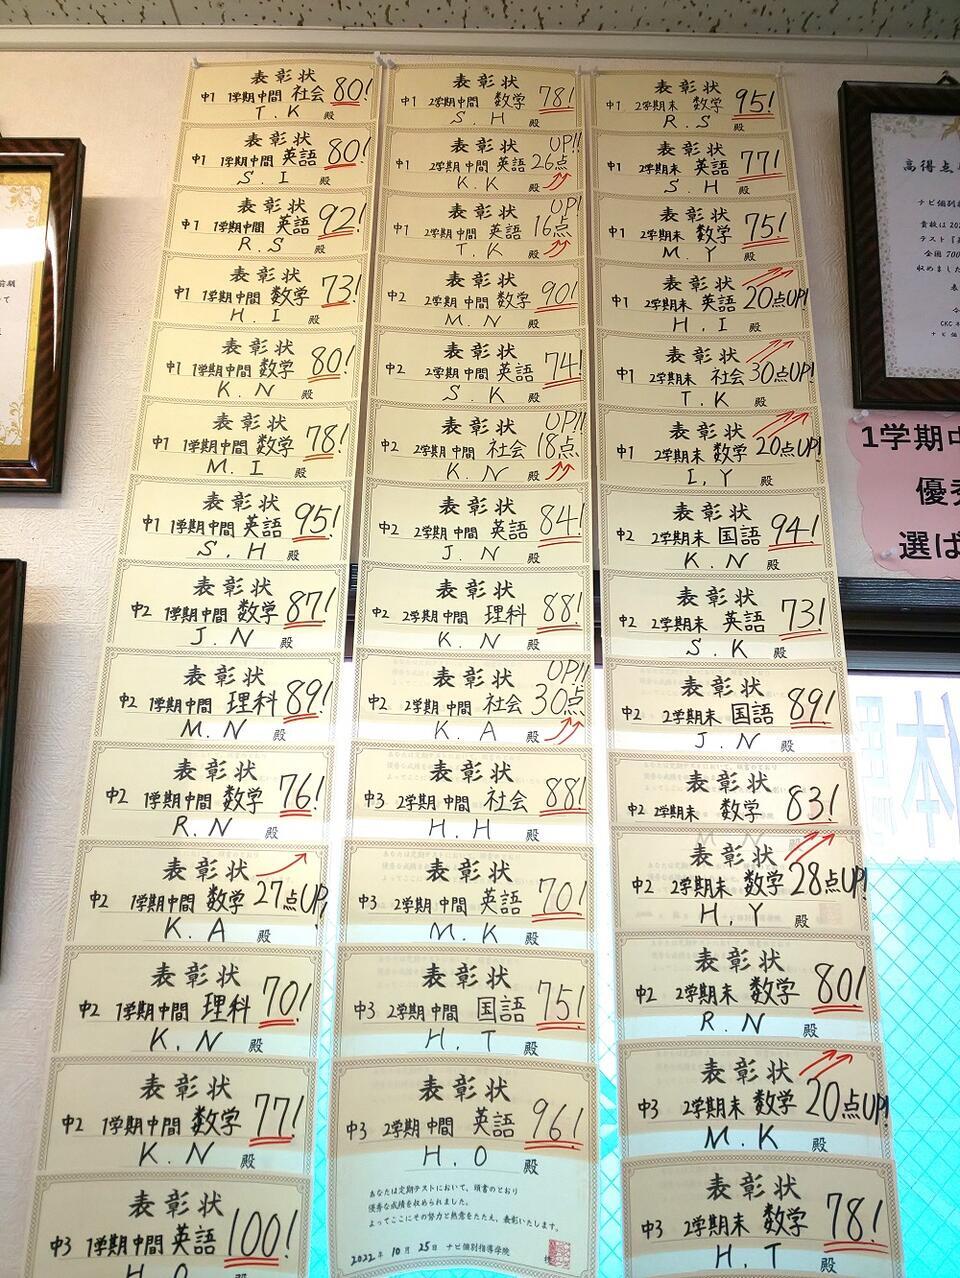 表彰状
中1 1学期中間 社会 80!
T.K 殿
表彰状
中1 1学期中間 英語 80!
S.I 殿
表彰状
中1 1学期中間 英語 92!
R.S 殿
表彰状
中1 1学期中間 数学 73!
H.I 殿
表彰状
中1 1学期中間 数学 80!
K.N 殿
表彰状
中1 1学期中間 数学 78!
M.I 殿
表彰状
中1 1学期中間 英語 95!
S.H 殿
表彰状
中2 1学期中間 数学 87!
J.N 殿
表彰状
中2 1学期中間 理科 89!
M.N 殿
表彰状
中2 1学期中間 数学 76!
R.N 殿
表彰状
中2 1学期中間 数学 27点UP!
K.A 殿
表彰状
中2 1学期中間 理科 70!
K.N 殿
表彰状
中2 1学期中間 数学 77!
K.N 殿
表彰状
中3 1学期中間 英語 100!
表彰状
中1 2学期中間 数学 78!
S.H 殿
表彰状 UP!!
中1 2学期中間 英語 26点
K.K 殿
表彰状 UP!
中1 2学期中間 英語 16点
T.K 殿
表彰状
中2 2学期中間 数学 90!
M.N 殿
表彰状
中2 2学期中間 英語 74!
S.K 殿
表彰状 UP!!
中2 2学期中間 社会 18点
K.N 殿
表彰状
中2 2学期中間 英語 84!
J.N 殿
表彰状
中2 2学期中間 理科 88!
K.N 殿
表彰状 UP!!
中2 2学期中間 社会 30点
K.A 殿
表彰状
中3 2学期中間 社会 88!
H.H 殿
表彰状
中3 2学期中間 英語 70!
M.K 殿
表彰状
中3 2学期中間 国語 75!
H.T 殿
表彰状
中3 2学期中間 英語 96!
H.O 殿
あなたは定期テストにおいて、頭書のとおり
優秀な成績を収められました。
よってここにその努力と熱意をたたえ、表彰いたします。
2022年 10月 25日 ナビ個別指導学院
表彰状
中1 2学期末 数学 95!
R.S 殿
表彰状
中1 2学期末 英語 77!
S.H 殿
表彰状
中1 2学期末 数学 75!
M.Y 殿
表彰状
中1 2学期末 英語 20点UP!
H.I 殿
表彰状
中1 2学期末 社会 30点UP!
T.K 殿
表彰状
中1 2学期末 数学 20点UP!
I.Y 殿
表彰状
中2 2学期末 国語 94!
K.N 殿
表彰状
中2 2学期末 英語 73!
S.K 殿
表彰状
中2 2学期末 国語 89!
J.N 殿
表彰状
中2 2学期末 数学 83!
M.N
表彰状
中2 2学期末 数学 28点UP!
H.Y 殿
表彰状
中2 2学期末 数学 80!
R.N 殿
表彰状
中3 2学期末 数学 20点UP!
M.K 殿
表彰状
中3 2学期末 数学 78!
H.T 殿
高得点
ナビ個別
貴殿は202
テスト『
全国700
収めました
1学期中
優秀
選ば